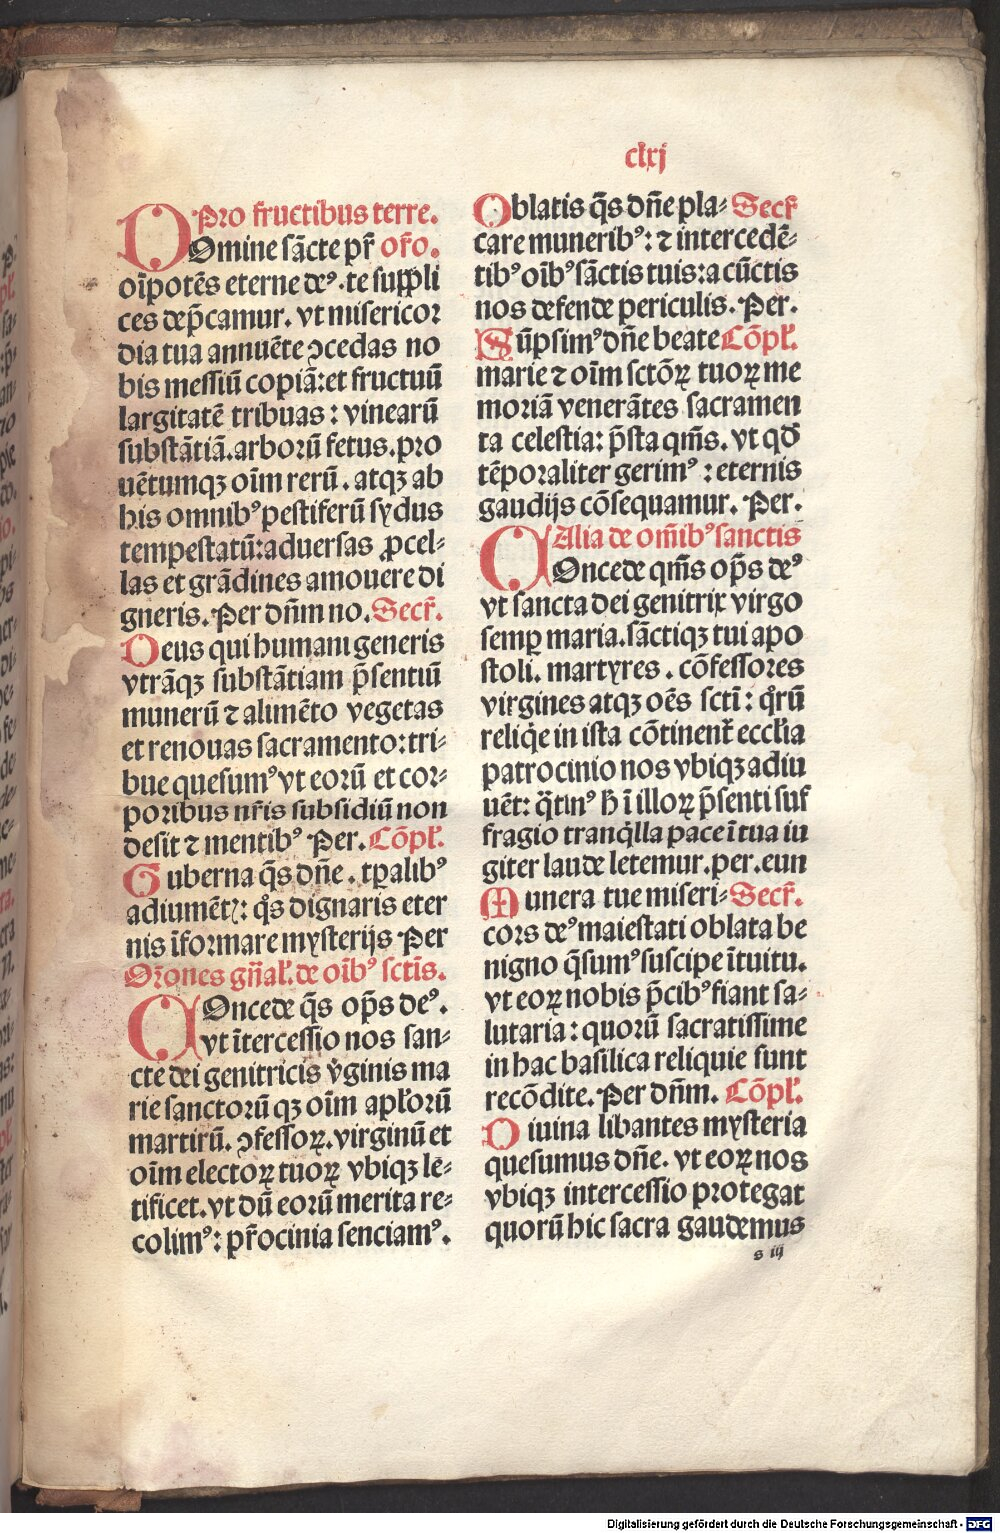 clxj
Pro fructibus terre.
Domine sācte pr̄ or̄o.
oīpotēs eterne deꝰ. te suppli
ces dep̄camur. vt misericor
dia tua annuēte ↄcedas no
bis messiū copiā: et fructuū
largitatē tribuas: vinearū
substātiā. arborū fetus. pro
uētumqꝫ oīm rerū. atqꝫ ab
his omnibꝰ pestiferū sydus
tempestatū: aduersas ꝓcel⸗
las et grādines amouere di
gneris. Per dn̄m no. Secr̄.
Deus qui humani generis
vtrāqꝫ substātiam p̄sentiū
munerū ⁊ alimēto vegetas
et renouas sacramento: tri⸗
bue quesumꝰ vt eorū et cor⸗
poribus nr̄is subsidiū non
desit ⁊ mentibꝰ Per. Cōpl̄.
Guberna q̄s dn̄e. tꝑalibꝰ
adiumētꝭ: q̊s dignaris eter
nis īformare mysterijs Per
Or̄ones gn̄al̄. de oībꝰ sctīs.
COncede q̄s op̄s deꝰ.
vt ītercessio nos san⸗
cte dei genitricis v̇ginis ma
rie sanctorū qꝫ oīm apl̄orū
martirū. ↄfessoꝝ. virginū et
oīm electoꝝ tuoꝝ vbiqꝫ le⸗
tificet. vt dū eorū merita re⸗
colimꝰ: pr̄ocinia senciamꝰ.
Oblatis q̄s dn̄e pla⸗ Secr̄
care muneribꝰ: ⁊ intercedē⸗
tibꝰ oībꝰ sāctis tuis: a cūctis
nos defende periculis. Per.
Sūpsimꝰ dn̄e beate Cōpl̄.
marie ⁊ oīm sctōꝝ tuoꝝ me
moriā venerātes sacramen
ta celestia: p̄sta qm̄s. vt qď
tēporaliter gerimꝰ: eternis
gaudijs cōsequamur. Per.
Alia de om̄ibꝰ sanctis
COncede qm̄s op̄s deꝰ
vt sancta dei genitrix virgo
semꝑ maria. sāctiqꝫ tui apo
stoli. martyres. cōfessores
virgines atqꝫ oēs sctī: q̊rū
reliq̄e in ista cōtinent̄ eccl̄ia
patrocinio nos vbiqꝫ adiu
uēt: q̄tinꝰ h̄ ī illoꝝ p̄senti suf
fragio tranq̇lla pace ī tua iu
giter laude letemur. per. eun
Munera tue miseri⸗ Secr̄.
cors deꝰ maiestati oblata be
nigno q̄sumꝰ suscipe ītuitu.
vt eoꝝ nobis p̄cibꝰ fiant sa⸗
lutaria: quorū sacratissime
in hac basilica reliquie sunt
recōdite. Per dn̄m. Cōpl̄.
Diuina libantes mysteria
quesumus dn̄e. vt eoꝝ nos
vbiqꝫ intercessio protegat
quorū hic sacra gaudemus
s iij
Digitalisierung gefördert durch die Deutsche Forschungsgemeinschaft - DFG